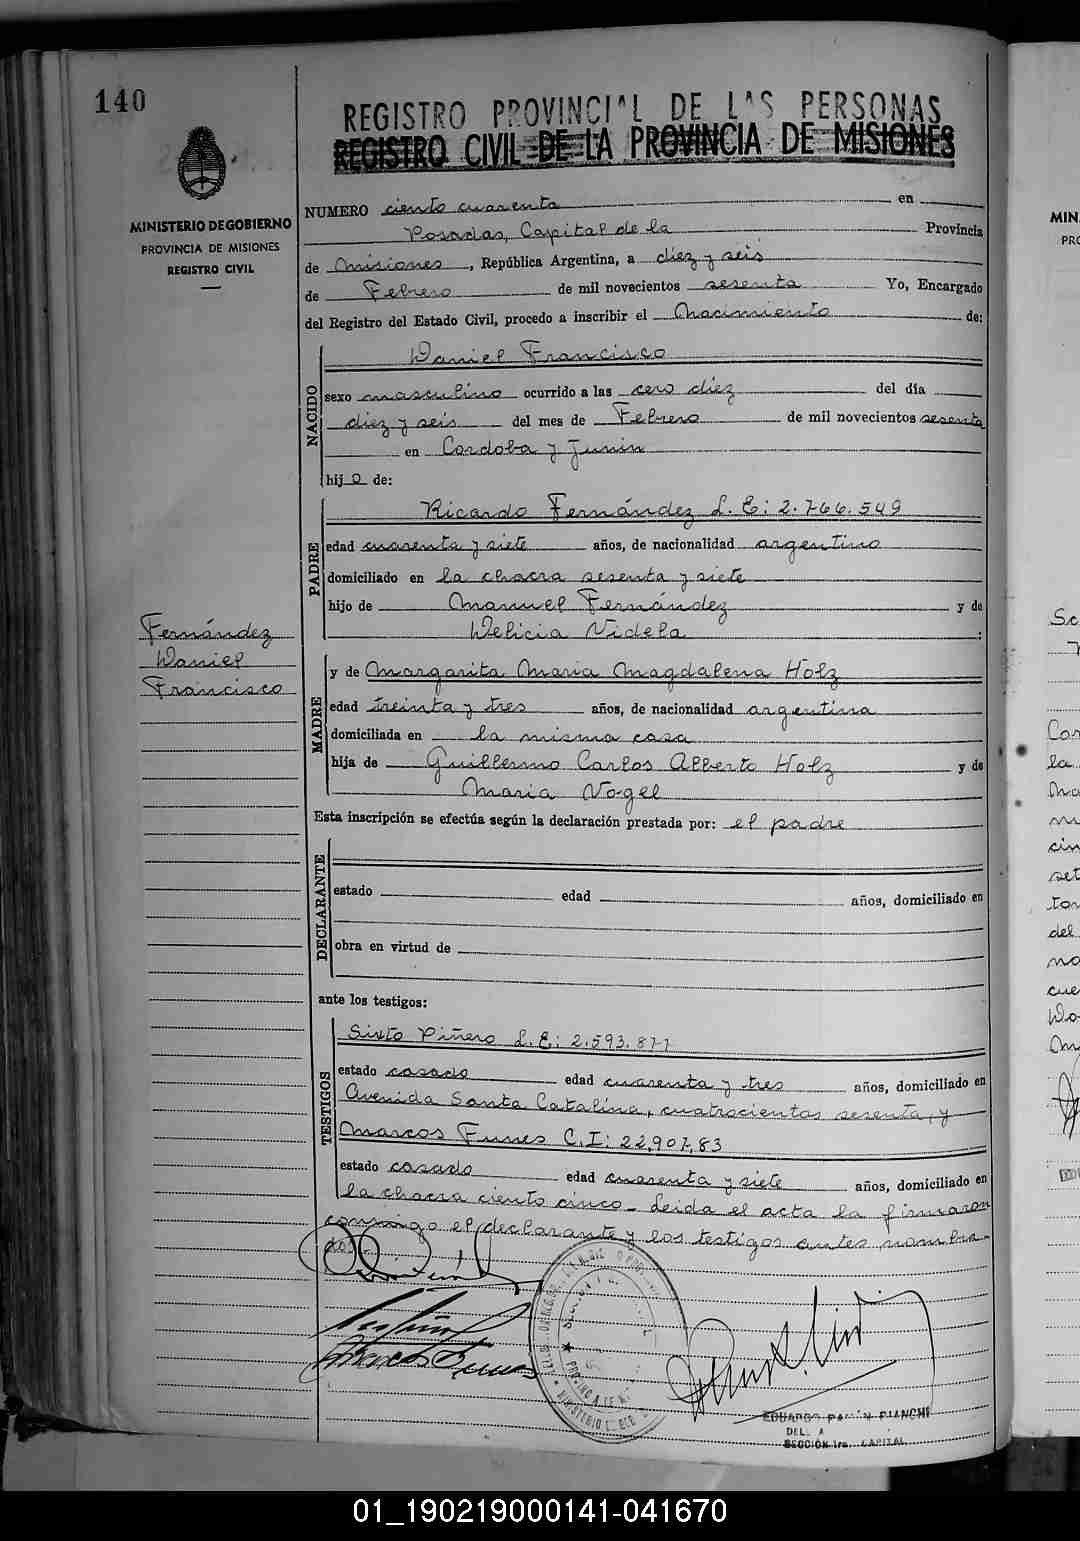 140
REGISTRO PROVINCIAL DE LAS PERSONAS
REGISTRO CIVIL DE LA PROVINCIA DE MISIONES
MINISTERIO DE GOBIERNO
PROVINCIA DE MISIONES
REGISTRO CIVIL
NUMERO ciento cuarenta en
Posadas, Capital de la Provincia
de Misiones, República Argentina, a diez y seis
de Febrero de mil novecientos sesenta Yo, Encargado
del Registro del Estado Civil, procedo a inscribir el Nacimiento de:
NACIDO
Daniel Francisco
sexo masculino ocurrido a las cero diez del día
diez y seis del mes de Febrero de mil novecientos sesenta
en Cordoba y Junin
hijo de:
PADRE
Ricardo Fernández L. E: 2.766.549
edad cuarenta y siete años, de nacionalidad argentino
domiciliado en la chacra sesenta y siete
hijo de Manuel Fernández y de
Delicia Videla :
Fernández
Daniel
Francisco
MADRE
y de Margarita Maria Magdalena Holz
edad treinta y tres años, de nacionalidad argentina
domiciliada en la misma casa
hija de Guillermo Carlos Alberto Holz y de
Maria Vogel
Esta inscripción se efectúa según la declaración prestada por: el padre
DECLARANTE
estado edad años, domiciliado en
obra en virtud de
ante los testigos:
TESTIGOS
Sixto Piñero L. E: 2.593.877
estado casado edad cuarenta y tres años, domiciliado en
Avenida Santa Catalina, cuatrocientos sesenta, y
Marcos Funes C.I: 22,907,83
estado casado edad cuarenta y siete años, domiciliado en
la chacra ciento cinco_ Leida el acta la firmaron
conmigo el declarante y los testigos antes nombra-
dos.
Marcos Funes
EDUARDO RAMÓN BIANCHI
SECCIÓN 1ra. CAPITAL
01_190219000141-041670